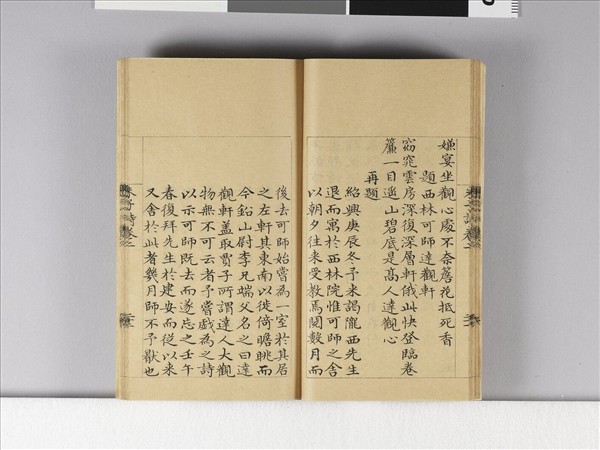 嫌宴坐觀心處不奈簷花抵死香
題西林可師達觀軒
窈窕雲房深復深層軒俄此快登臨卷
簾一目遥山碧底是髙人達觀心
再題
紹興庚辰冬予来謁隴西先生
退而寓於西林院惟可師之舎
以朝夕往来受教焉閱數月而
後去可師始嘗為一室於其居
之左軒其東南以徙倚瞻眺而
今鉛山尉李兄端父名之曰達
觀軒盖取賈子所謂達人大觀
物無不可云者予嘗戲為之詩
以示可師既去而遂忘之壬午
春復拜先生於建安而從以来
又舍於此者㡬月師不予猒也